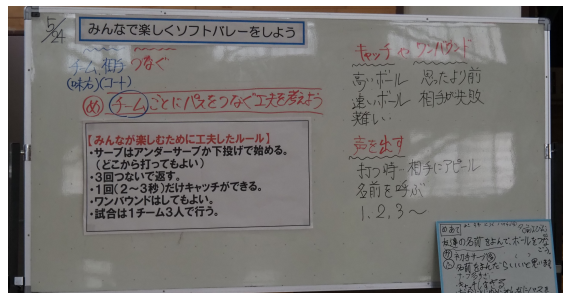 5/24
みんなで楽しくソフトバレーをしよう
チーム 相手 つなぐ
(味方)(コート)
め チームごとにパスをつなぐ工夫を考えよう
【みんなが楽しむために工夫したルール】
・サーブはアンダーサーブか下投げで始める。
(どこから打ってもよい)
・3回つないで返す。
・1回(2～3秒)だけキャッチができる。
・ワンバウンドはしてもよい。
・試合は1チーム3人で行う。
キャッチやワンバウンド
高いボール 思ったより前
速いボール 相手が失敗
難しい
声を出す
打つ時…相手にアピール
名前を呼ぶ
1.2.3～
めあて
の名前をよんで、ボールをつな